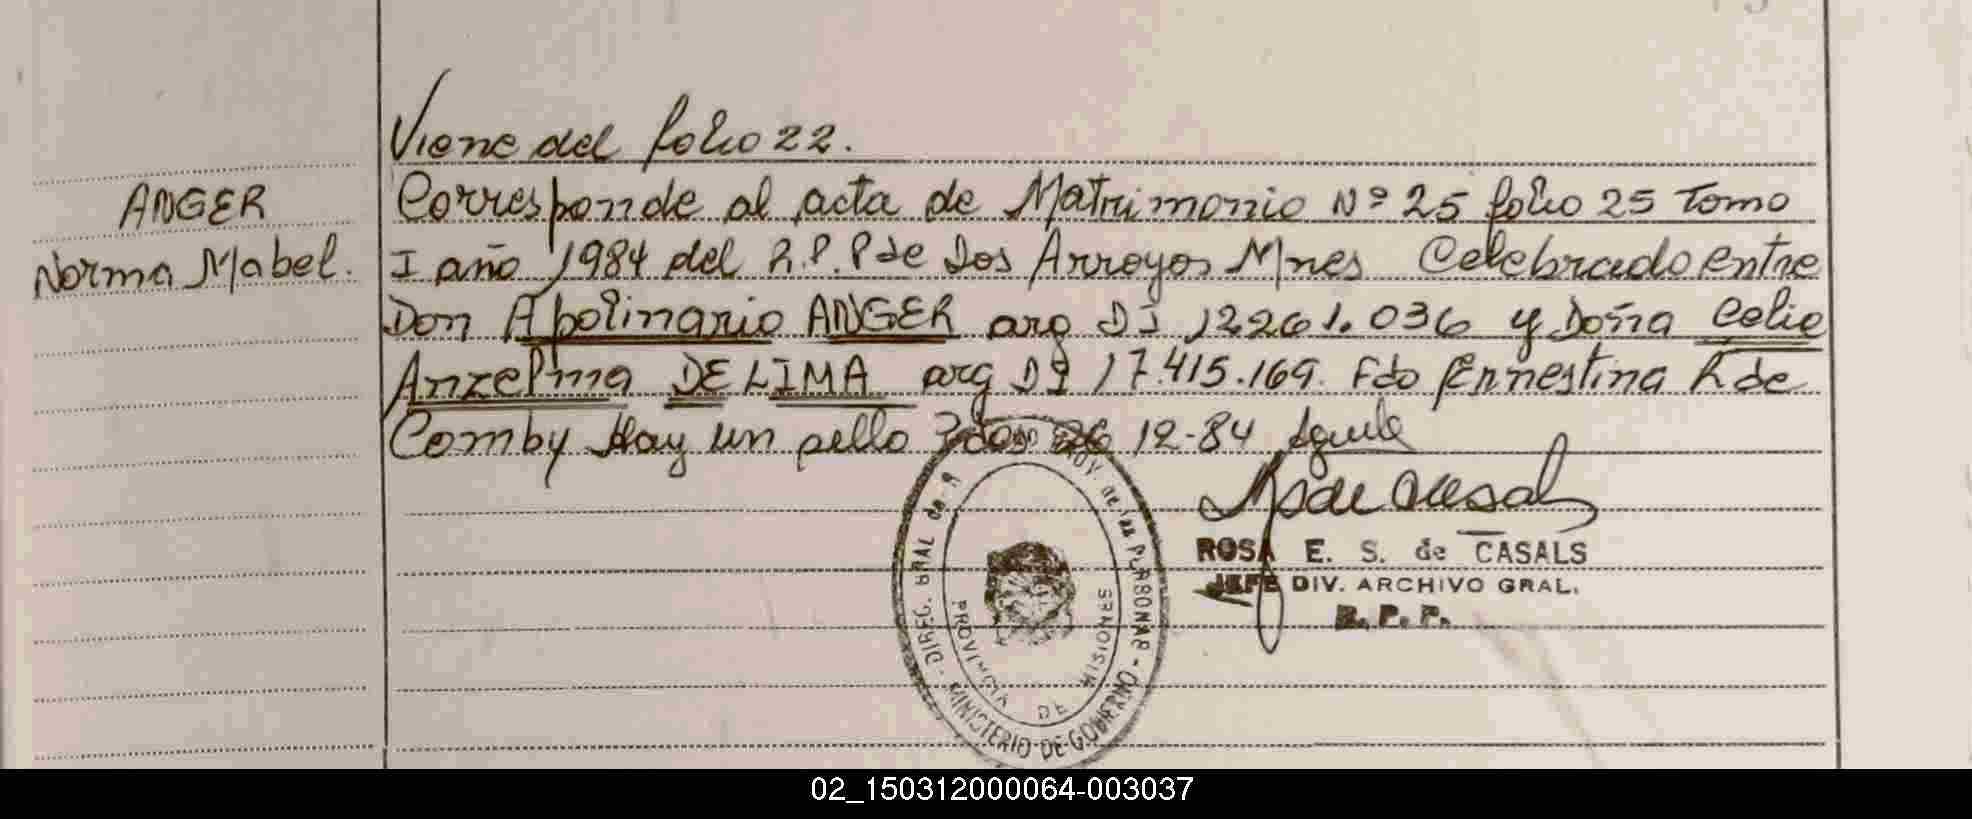 ANGER
Norma Mabel.
Viene del folio 22.
Corresponde al acta de Matrimonio Nº 25 folio 25 Tomo
I año 1984 del R.P.P de Dos Arroyos Mnes Celebrado entre
Don Apolinario ANGER arg DI 12261.036 y Doña Celia
Anzelma DE LIMA arg DI 17.415.169. Fdo Ernestina R de
Comby Hay un sello Pdas 26 12-84
ROSA E. S. de CASALS
JEFE DIV. ARCHIVO GRAL.
R. P. P.
DIREG. GRAL de R PROV. de las PERSONAS - MINISTERIO DE GOBIERNO -
PROVINCIA DE MISIONES
02_150312000064-003037